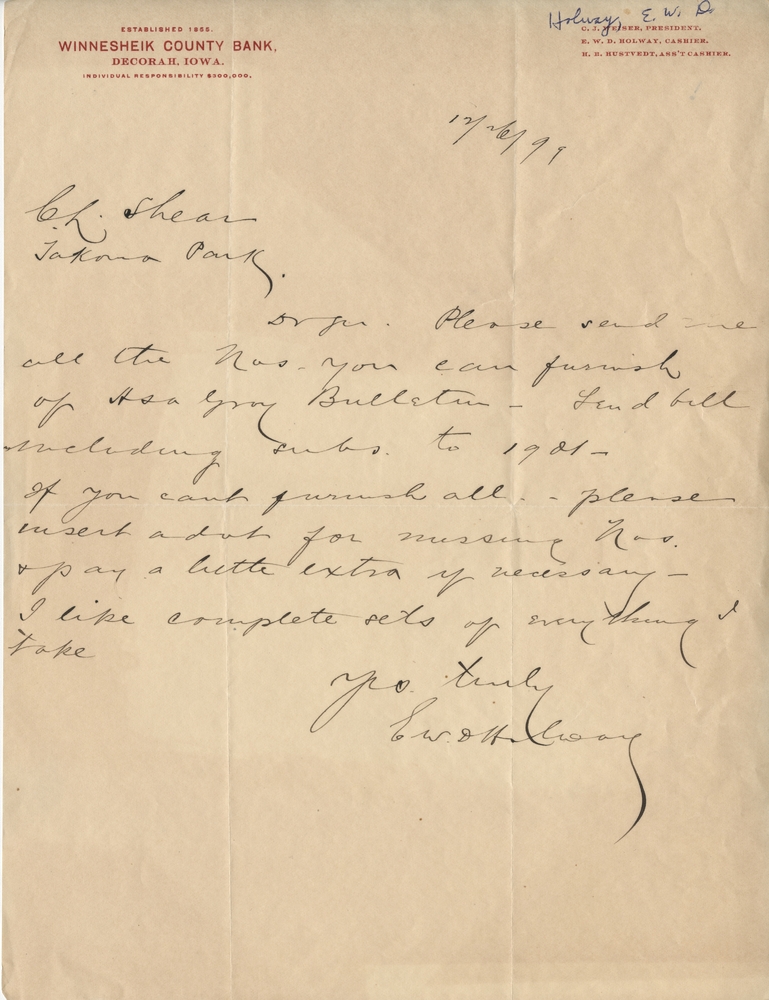 Holway, E. W. D.
ESTABLISHED 1855.
WINNESHEIK COUNTY BANK,
DECORAH, IOWA.
INDIVIDUAL RESPONSIBILITY $300,000.
C. J. WEISER, PRESIDENT.
E. W. D. HOLWAY, CASHIER.
H. B. HUSTVEDT, ASS'T CASHIER.
12/26/99
Ch. Shear
Takoma Park.
Dr Sir. Please send me
all the Nos. you can furnish
of Asa Gray Bulletin – Send bill
including subs. to 1901 –
If you cant furnish all. – please
insert advt for missing Nos.
& pay a little extra if necessary –
I like complete sets of everything I
take
Yrs. truly
E. W. D. Holway